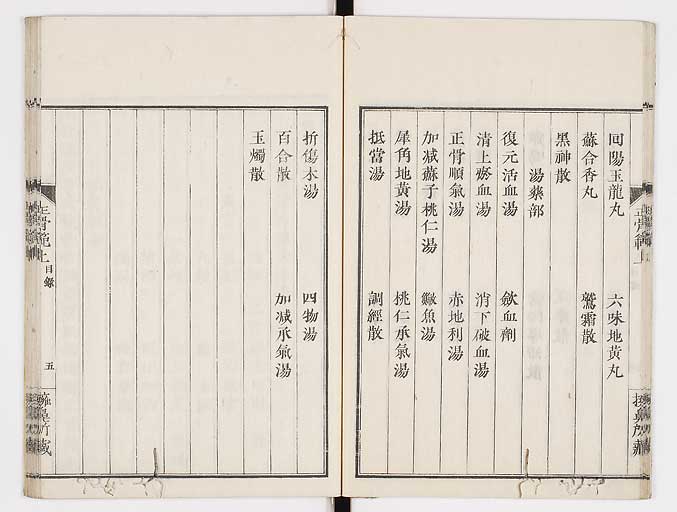 回陽玉龍丸 六味地黃丸
蘇合香丸 鷲霜散
黑神散
湯藥部
復元活血湯 歛血劑
清上瘀血湯 消下破血湯
正骨順氣湯 赤地利湯
加减蘇子桃仁湯 鱖魚湯
犀角地黃湯 桃仁承氣湯
抵當湯 調經散
折傷木湯 四物湯
百合散 加减承氣湯
玉燭散
正骨範上 目錄 五